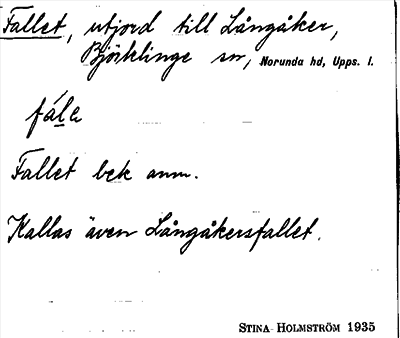 Fallet, utjord till Långåker,
Björklinge sn, Norunda hd, Upps. l.
fála
Fallet bek anm.
Kallas även Långåkersfallet.
STINA HOLMSTRÖM 1935